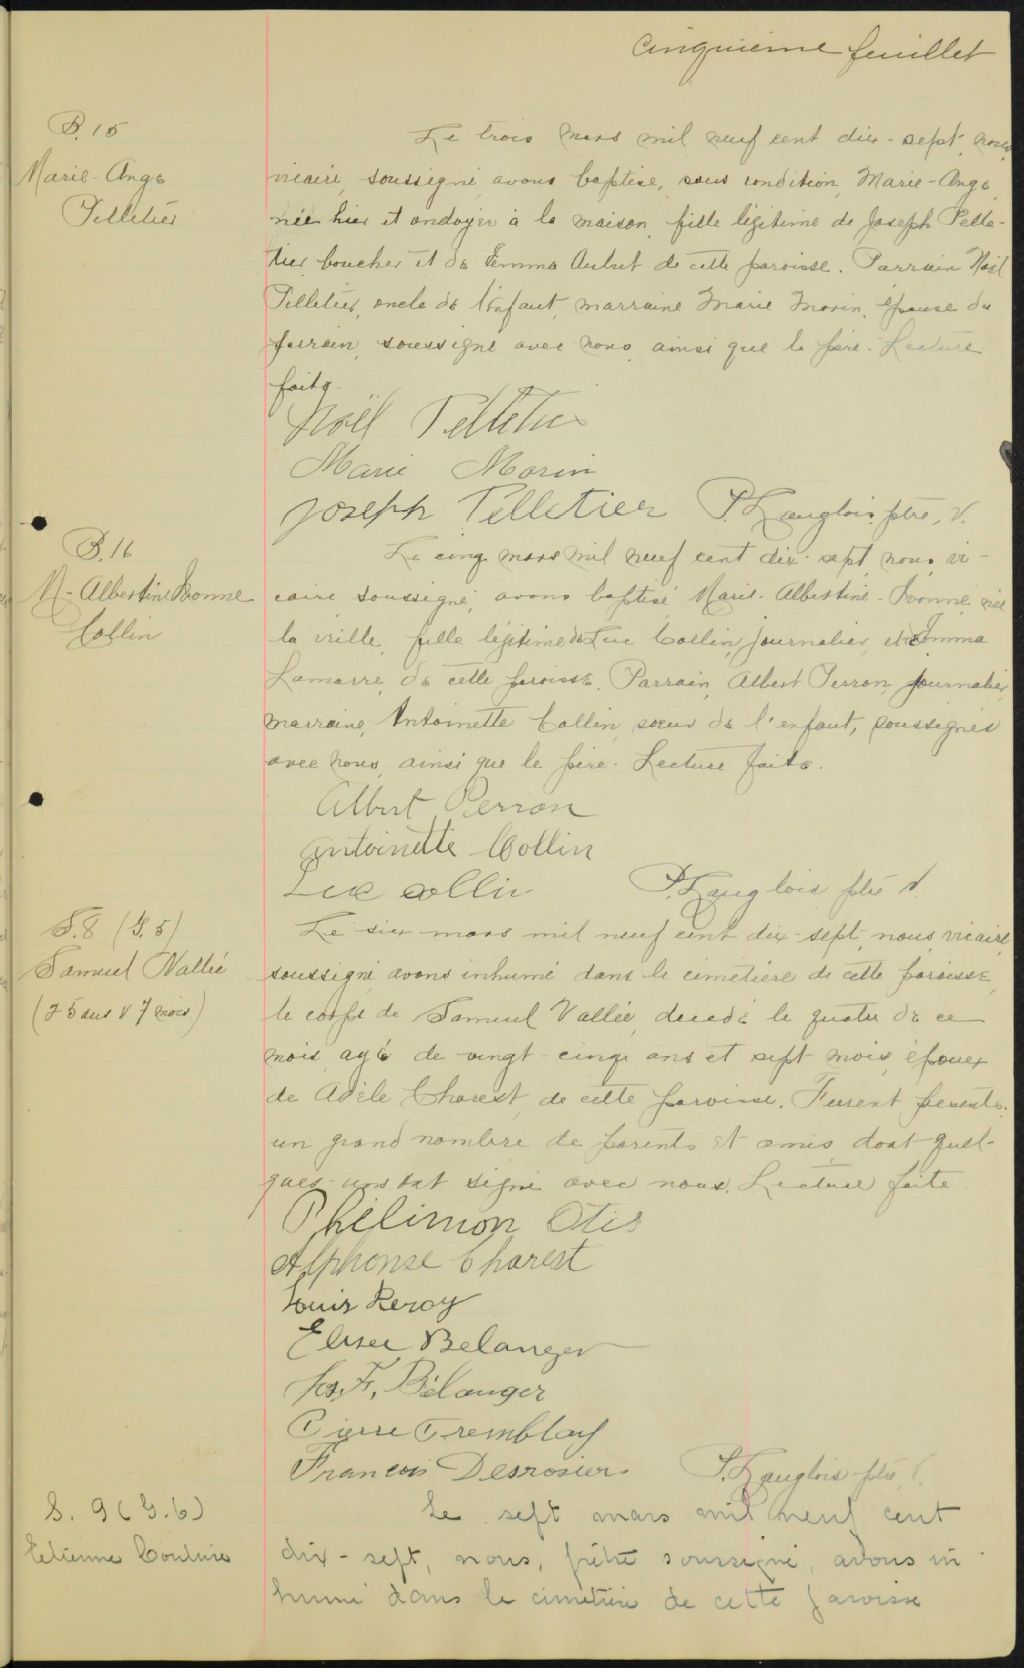 Cinquième feuillet
B. 15
Marie-Ange
Pelletier
Le trois mars mil neuf cent dix-sept, nous,
vicaire, soussigné avons baptisé, sous condition, Marie-Ange,
née hier et ondoyée à la maison, fille légitime de Joseph Pelle-
tier boucher et de Emma Aubut de cette paroisse. Parrain Noël
Pelletier, oncle de l'enfant, marraine Marie Morin, épouse du
parrain, soussigné avec nous ainsi que le père. Lecture
faite.
Noël Pelletier
Marie Morin
Joseph Pelletier P. Langlois ptre, V.
B. 16
M-Albertine Ivonne
Collin
Le cinq mars mil neuf cent dix-sept nous, vi-
caire soussigné, avons baptisé Marie-Albertine-Ivonne, née
la veille, fille légitime de Luc Collin, journalier, et de Emma
Lamarre, de cette paroisse. Parrain, Albert Perron, journalier,
marraine, Antoinette Collin, soeur de l'enfant, soussignés
avec nous, ainsi que le père. Lecture faite.
Albert Perron
Antoinette Collin
Luc collin P. Langlois ptre V.
S. 8 (G. 5)
Samuel Vallée
(25 ans & 7 mois)
Le six mars mil neuf cent dix-sept, nous, vicaire,
soussigné, avons inhumé dans le cimetière de cette paroisse,
le corps de Samuel Vallée, décédé le quatre de ce
mois, agé de vingt-cinq ans et sept mois, époux
de Adèle Charest, de cette paroisse. Furent présents
un grand nombre de parents et amis, dont quel-
ques-uns ont signé avec nous. Lecture faite
Philimon Otis
Alphonse Charest
Louis Leroy
Elisee Belanger
Jos. F. Bélanger
Pierre Tremblay
Francois Desrosiers P. Langlois ptre, V.
S. 9 (G. 6)
Etienne
Le sept mars mil neuf cent
dix-sept, nous, prêtre soussigné, avons in-
humé dans le cimetière de cette paroisse